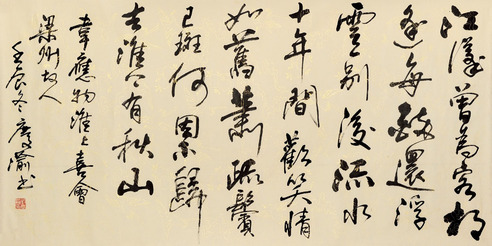 江漢曾為客相
逢每醉還浮
雲一别後流水
十年間歡笑情
如舊蕭疏鬢
已斑何因不歸
去淮上有秋山
韋應物淮上喜會
梁州故人
壬辰冬书